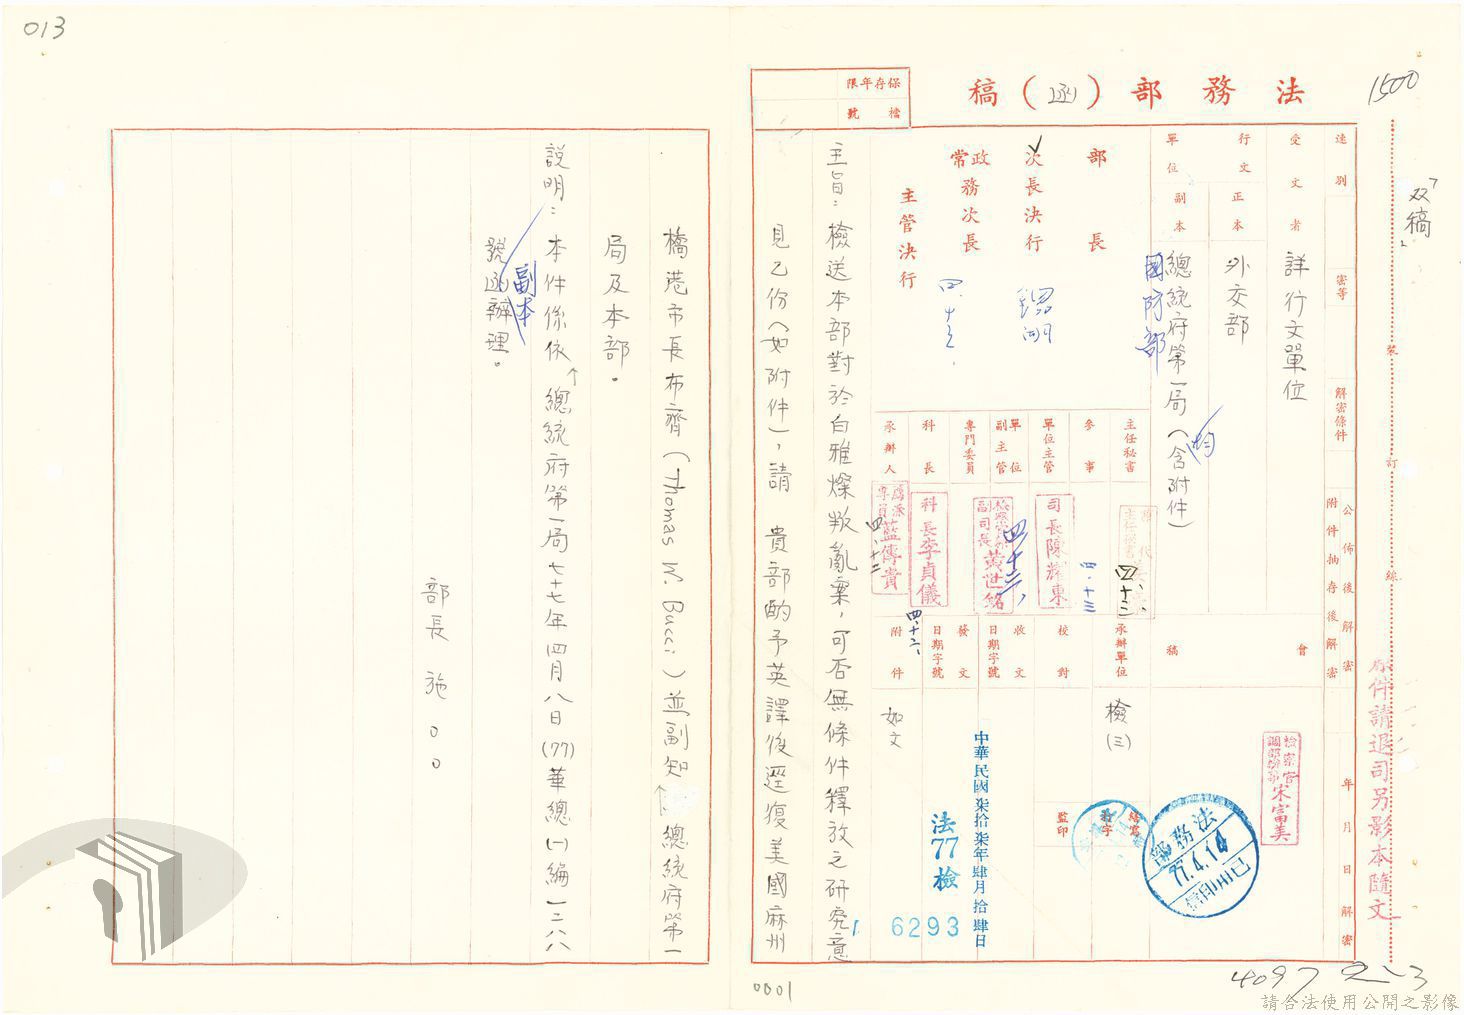 013
1500
法務部（函）稿
保存年限
檔號
双稿
速別
密等
解密條件
公布後解密
附件抽存後解密
年月日解密
裝訂線
原件請退司另影本隨文
受文者
詳行文單位
行文單位
正本
外交部
副本
總統府第一局（含附件）
國防部
部長
次長決行
政務次長
常
主管決行
四、十三、
主任秘書
參事
單位主管
單位副主管
專門委員
科長
承辦人
司長陳耀東
黃世銘
科長李貞儀
藍傳貴
四、十三
四、十二、
四、十二
會稿
檢察官調部辦事宋富美
承辦單位
檢(三)
校對
監印
繕寫
收文日期字號
發文日期字號
中華民國柒拾柒年肆月拾肆日
法77檢
6293
附件
如文
法務部
77.4.14
主旨：檢送本部對於白雅燦叛亂案，可否無條件釋放之研究意
見乙份（如附件），請　貴部酌予英譯後逕復美國麻州
橋港市長布齊（Thomas W. Bucci）並副知　總統府第一
局及本部。
說明：本件係依　總統府第一局七十七年四月八日(77)華總(一)編一二八八
號函副本辦理。
部長　施○○
0001
4097
請合法使用公開之影像